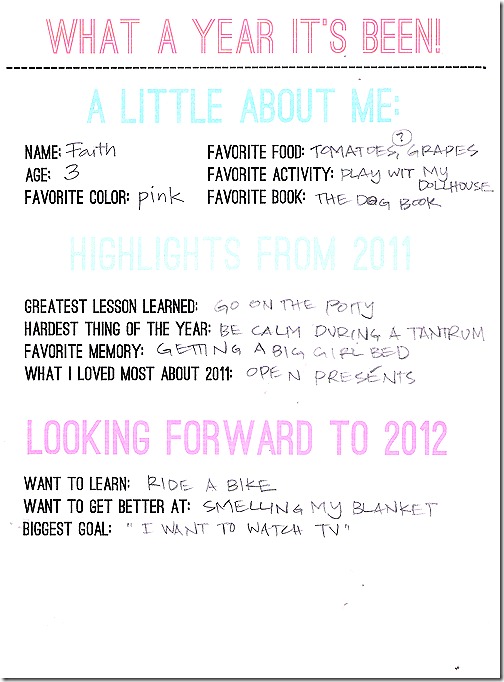 WHAT A YEAR IT'S BEEN!
A LITTLE ABOUT ME:
NAME: Faith
AGE: 3
FAVORITE COLOR: pink
FAVORITE FOOD: TOMATOES, (?) GRAPES
FAVORITE ACTIVITY: PLAY WIT MY
DOLLHOUSE
FAVORITE BOOK: THE DOG BOOK
HIGHLIGHTS FROM 2011
GREATEST LESSON LEARNED: GO ON THE POTTY
HARDEST THING OF THE YEAR: BE CALM DURING A TANTRUM
FAVORITE MEMORY: GETTING A BIG GIRL BED
WHAT I LOVED MOST ABOUT 2011: OPEN PRESENTS
LOOKING FORWARD TO 2012
WANT TO LEARN: RIDE A BIKE
WANT TO GET BETTER AT: SMELLING MY BLANKET
BIGGEST GOAL: "I WANT TO WATCH TV"